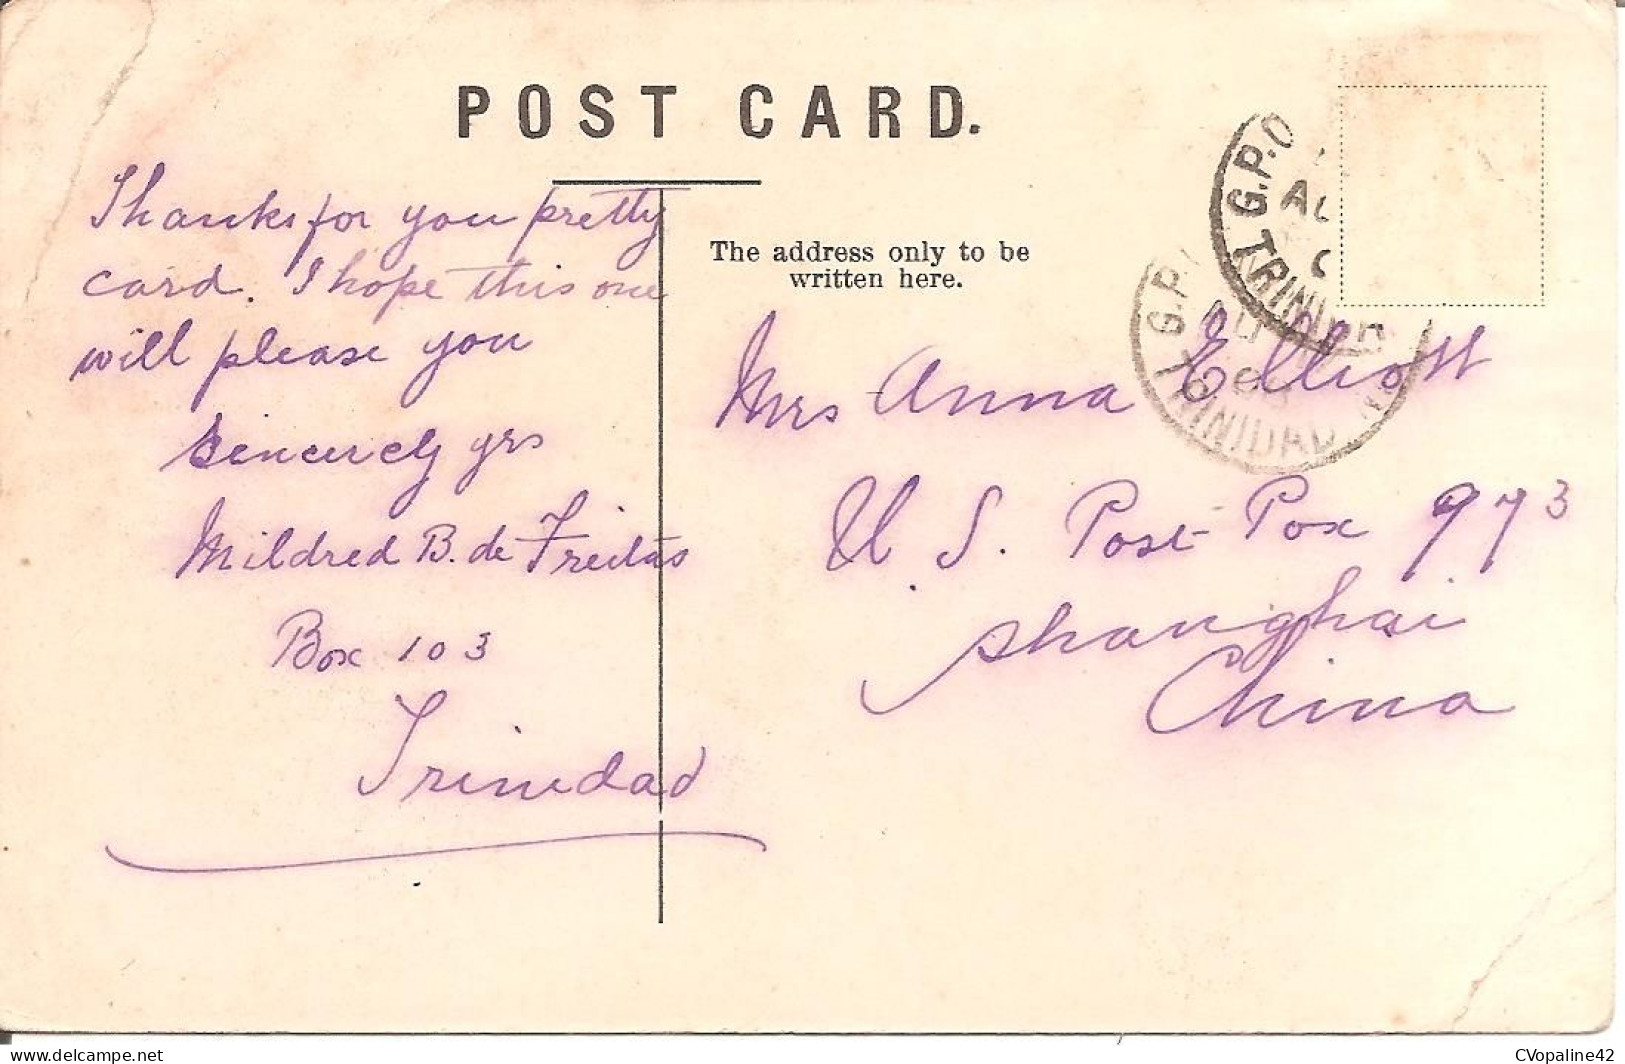 POST CARD.
Thanks for you pretty
card. I hope this one
will please you
Sincerely yrs
Mildred B. de Freitas
Box 103
Trinidad
The address only to be
written here.
Mrs Anna Elliott
U. S. Post Pox 973
Shanghai
China
G.P.O
AU
TRINIDAD
G.P
AU
TRINIDAD
CVopaline42